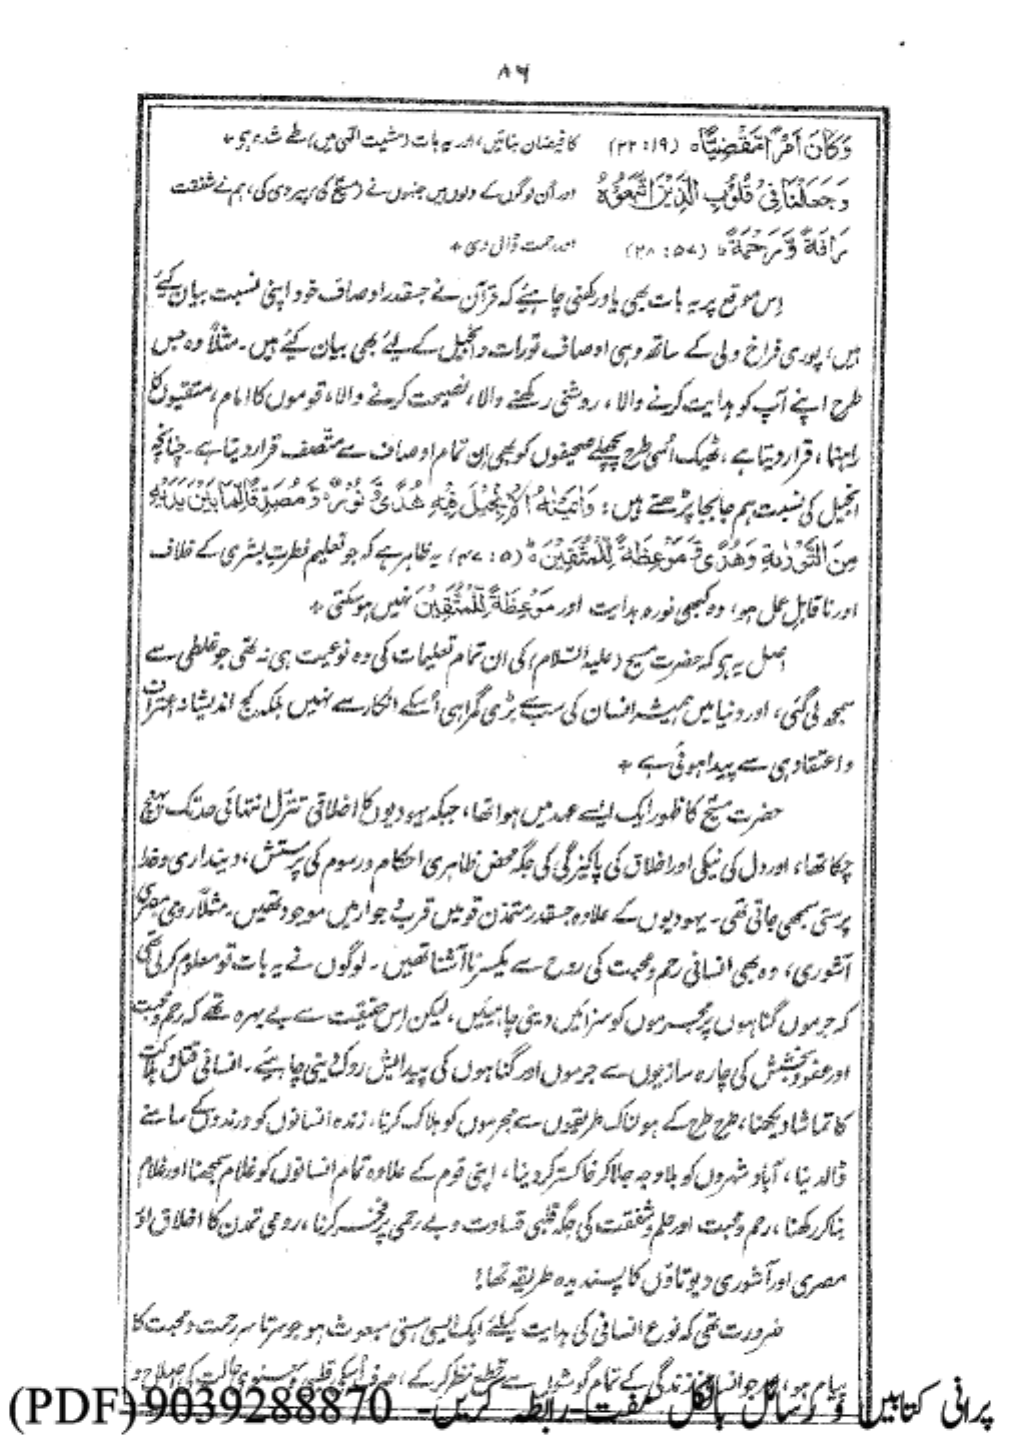 ۸۶
وَكَانَ اَمْرًا مَّقْضِيًّا ہ (۲۲:۱۹) کا فیضان بنائیں، اور یہ بات (مشیت الٰہی میں) طے شدہ ہی +
وَجَعَلْنَا فِيْ قُلُوْبِ الَّذِيْنَ اتَّبَعُوْهُ اور اُن لوگوں کے دلوں میں جنہوں نے (مسیح کی) پیروی کی، ہم نے شفقت
رَاْفَةً وَّرَحْمَةً ط (۲۸:۵۷) اور رحمت ڈال دی +
اِس موقع پر یہ بات بھی یاد رکھنی چاہیئے کہ قرآن نے جسقدر اوصاف خود اپنی نسبت بیان کیئے
ہیں، پوری فراخ دلی کے ساتھ وہی اوصاف تورات و انجیل کے لیئے بھی بیان کیئے ہیں۔ مثلاً وہ جس
طرح اپنے آپ کو ہدایت کرنے والا، روشنی رکھنے والا، نصیحت کرنے والا، قوموں کا امام، متقیوں کا
راہنما، قرار دیتا ہے، ٹھیک اُسی طرح پچھلے صحیفوں کو بھی اِن تمام اوصاف سے متّصف قرار دیتا ہے۔ چنانچہ
انجیل کی نسبت ہم جا بجا پڑھتے ہیں: وَاٰتَيْنٰهُ الْاِنْجِيْلَ فِيْهِ هُدًى وَّنُوْرٌ وَّمُصَدِّقًا لِّمَا بَيْنَ يَدَيْهِ
مِنَ التَّوْرٰىةِ وَهُدًى وَّمَوْعِظَةً لِّلْمُتَّقِيْنَ ط (۴۷:۵) یہ ظاہر ہے کہ جو تعلیم فطرتِ بشری کے خلاف
اور ناقابلِ عمل ہو، وہ کبھی نور و ہدایت اور مَوْعِظَةً لِّلْمُتَّقِيْنَ نہیں ہو سکتی +
اصل یہ ہو کہ حضرت مسیح (علیہ السّلام) کی ان تمام تعلیمات کی وہ نوعیت ہی نہ تھی جو غلطی سے
سمجھ لی گئی، اور دنیا میں ہمیشہ انسان کی سب سے بڑی گمراہی اُسکے انکار سے نہیں بلکہ کج اندیشانہ اعتراف
و اعتقاد ہی سے پیدا ہوئی ہے +
حضرت مسیح کا ظہور ایک ایسے عہد میں ہوا تھا، جبکہ یہودیوں کا اخلاقی تنزل انتہائی حد تک پہنچ
چکا تھا، اور دل کی نیکی اور اخلاق کی پاکیزگی کی جگہ محض ظاہری احکام و رسوم کی پرستش، دینداری و خدا
پرستی سمجھی جاتی تھی۔ یہودیوں کے علاوہ جسقدر متمدن قومیں قرب و جوار میں موجود تھیں۔ مثلاً رومی مصری
آشوری، وہ بھی انسانی رحم و محبت کی روح سے یکسر ناآشنا تھیں۔ لوگوں نے یہ بات تو معلوم کر لی تھی
کہ جرموں گناہوں پر مجرموں کو سزائیں دینی چاہیئیں، لیکن اِس حقیقت سے بے بہرہ تھے کہ رحم و محبت
اور عفو و بخشش کی چارہ سازیوں سے جرموں اور گناہوں کی پیدایش روک دینی چاہیئے۔ انسانی قتل و ہلاکت
کا تماشا دیکھنا، طرح طرح کے ہولناک طریقوں سے مجرموں کو ہلاک کرنا، زندہ انسانوں کو درندوں کے سامنے
ڈالدینا، آباد شہروں کو بلا وجہ جلا کر خاکستر کر دینا، اپنی قوم کے علاوہ تمام انسانوں کو غلام سمجھنا اور غلام
بنا کر رکھنا، رحم و محبت اور حلم و شفقت کی جگہ قلبی قساوت و بے رحمی پر فخر کرنا، رومی تمدن کا اخلاق اور
مصری اور آشوری دیوتاؤں کا پسندیدہ طریقہ تھا!
ضرورت تھی کہ نوع انسانی کی ہدایت کیلئے ایک ایسی ہستی مبعوث ہو جو سرتا سر رحمت و محبت کا
پیام ہو، اور جو انسانی زندگی کے تمام گوشوں سے قطع نظر کر کے، صرف اُسکی قلبی و معنوی حالت کی اصلاح و
پرانی کتابیں و رسائل بالکل مفت- رابطہ کریں- 9039288870 (PDF)